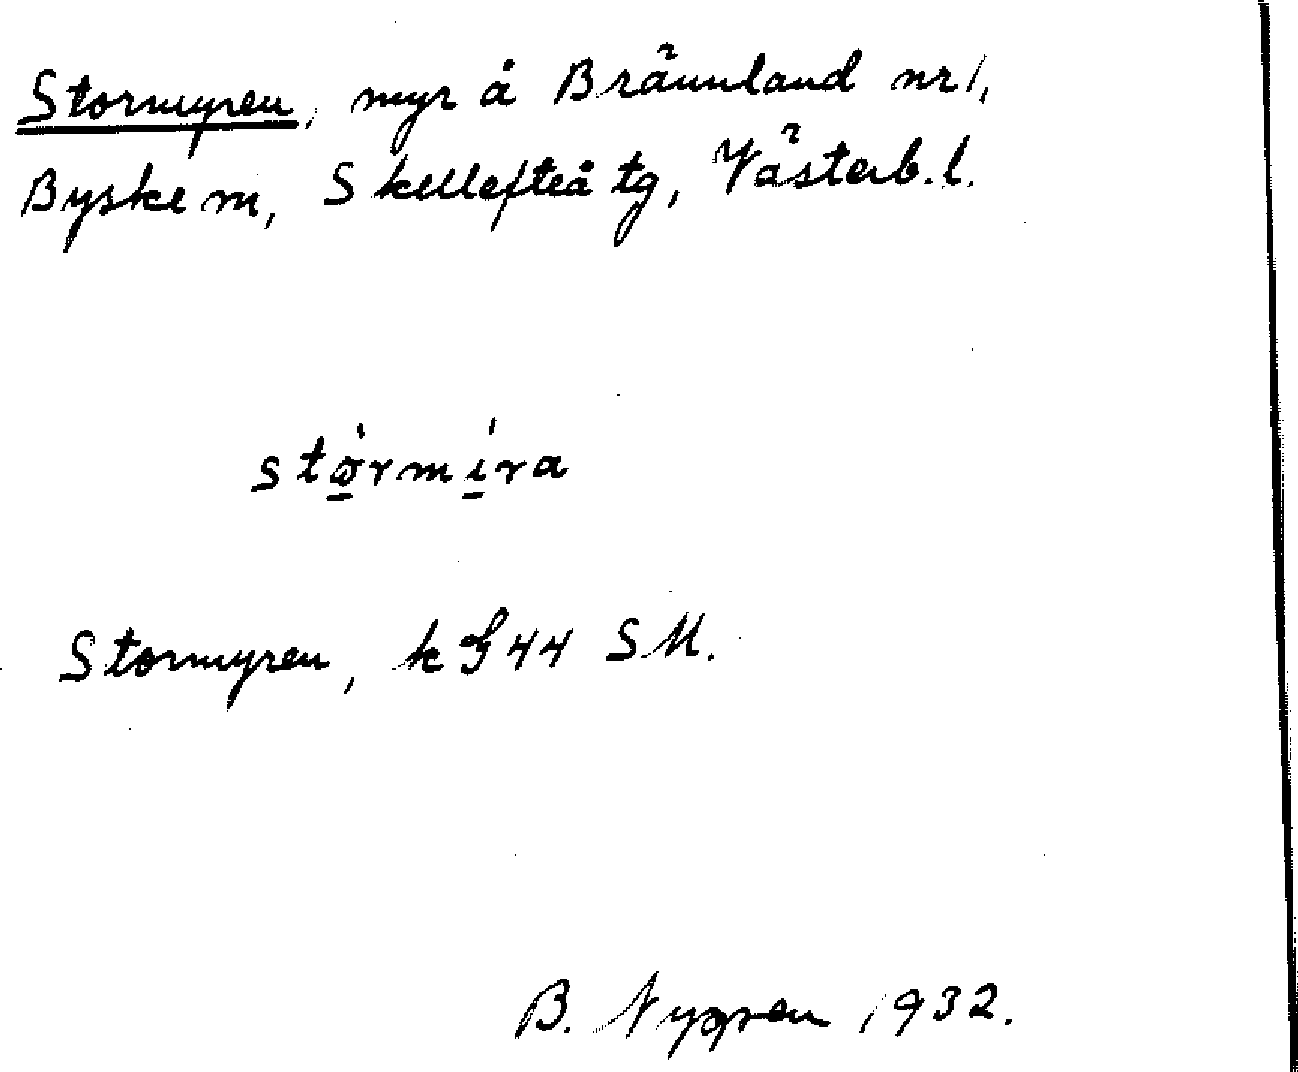 Stormyren, myr å Brännland nr 1,
Byske m, Skellefteå tg, Västerb. l.
stǿ̱rmí̱ra
Stormyren, k G 44 SM.
B. Nygren 1932.